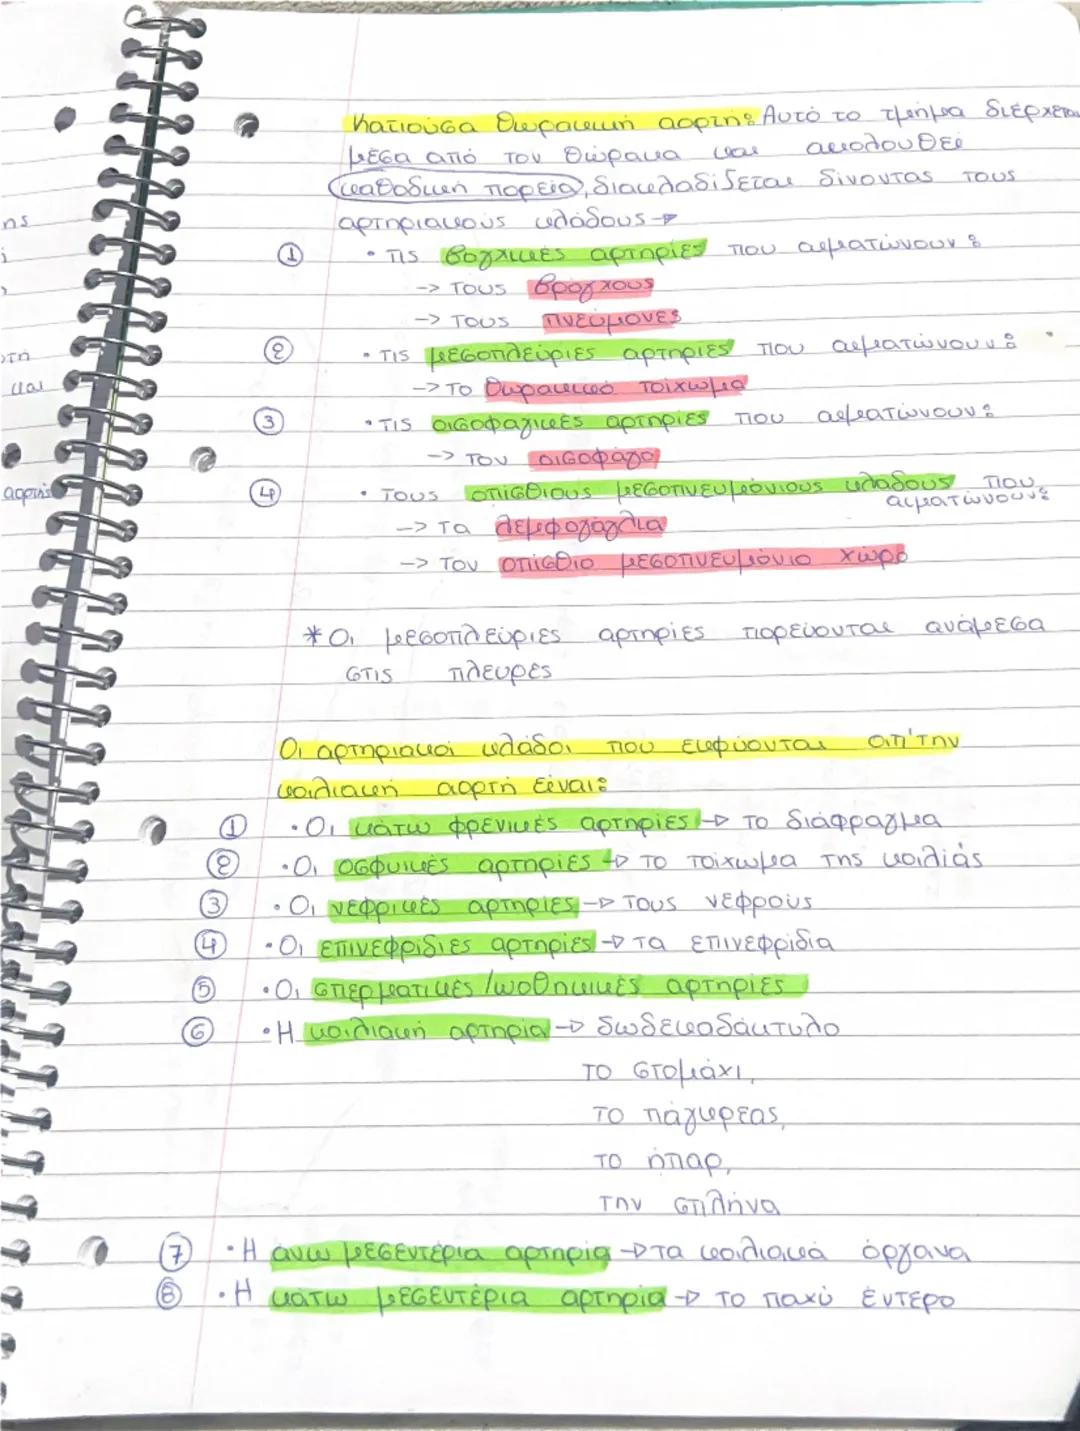 Κατιούσα θωρακική αορτή: Αυτό το τμήμα διέρχεται
μέσα από τον θώρακα και ακολουθεί
καθοδική πορεία, διακλαδίζεται δίνοντας τους
αρτηριακούς κλάδους →
① • τις βογχικές αρτηρίες που αιματώνουν:
→ τους βρόγχους
→ τους πνεύμονες
② • τις μεσοπλεύριες αρτηρίες που αιματώνουν:
→ το θωρακικό τοίχωμα
③ • τις οισοφαγικές αρτηρίες που αιματώνουν:
→ τον οισοφάγο
④ • τους οπίσθιους μεσοπνευμόνιους κλάδους που
αιματώνουν:
→ τα λεμφογάγλια
→ τον οπίσθιο μεσοπνευμόνιο χώρο
* Οι μεσοπλεύριες αρτηρίες πορεύονται ανάμεσα
στις πλευρές
Οι αρτηριακοί κλάδοι που εκφύονται απ'την
κοιλιακή αορτή είναι:
① • Οι κάτω φρενικές αρτηρίες → το διάφραγμα
② • Οι οσφυικές αρτηρίες → το τοίχωμα της κοιλιάς
③ • Οι νεφρικές αρτηρίες → τους νεφρούς
④ • Οι επινεφρίδιες αρτηρίες → τα επινεφρίδια
⑤ • Οι σπερματικές/ωοθηκικές αρτηρίες
⑥ • Η κοιλιακή αρτηρία → δωδεκαδάκτυλο
το στομάχι,
το πάγκρεας,
το ήπαρ,
την σπλήνα
⑦ • Η άνω μεσεντέρια αρτηρία → τα κοιλιακά όργανα
⑧ • Η κάτω μεσεντέρια αρτηρία → το παχύ έντερο
ης
ί
,
ρτη
και
αορτής